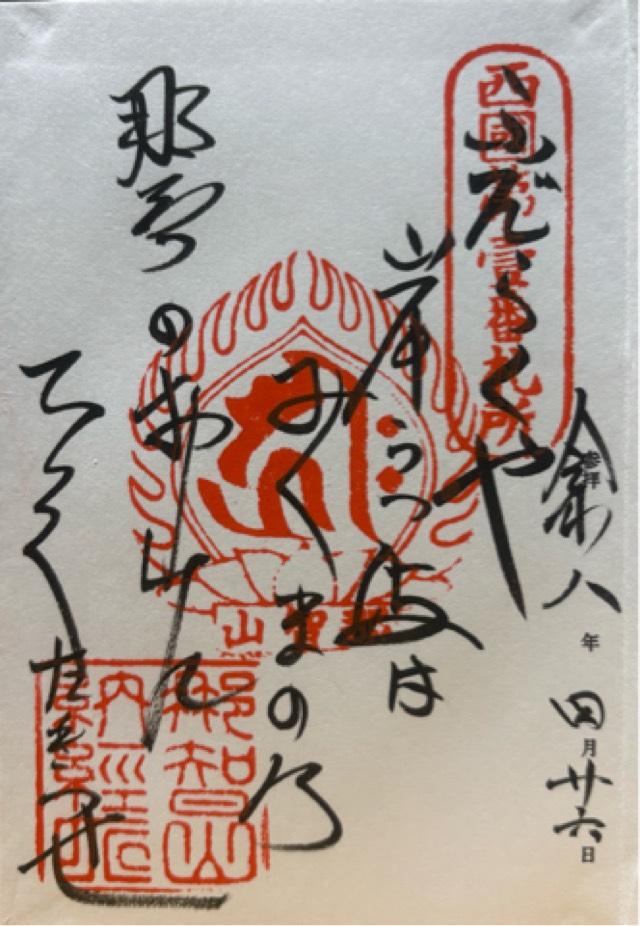 西國第壹番札所
参拝
令和八年四月廿六日
ふだらくや
岸うつ波は
みくまの乃
那智のお山に
ひゞくたきつせ
那智山
納経印